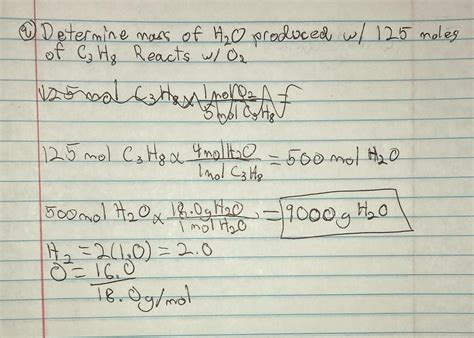 a) Determine mass of H₂O produced w/ 125 moles
of C₃H₈ Reacts w/ O₂
125 mol C₃H₈ x 1 mol O₂ / 5 mol C₃H₈
125 mol C₃H₈ x 4 mol H₂O / 1 mol C₃H₈ = 500 mol H₂O
500 mol H₂O x 18.0g H₂O / 1 mol H₂O = 9000 g H₂O
H₂ = 2(1.0) = 2.0
O = 16.0
18.0g/mol